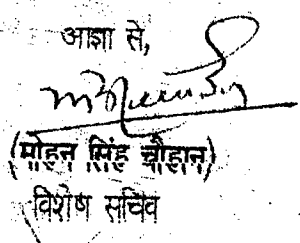 आज्ञा से,
(मोहन सिंह चौहान)
विशेष सचिव